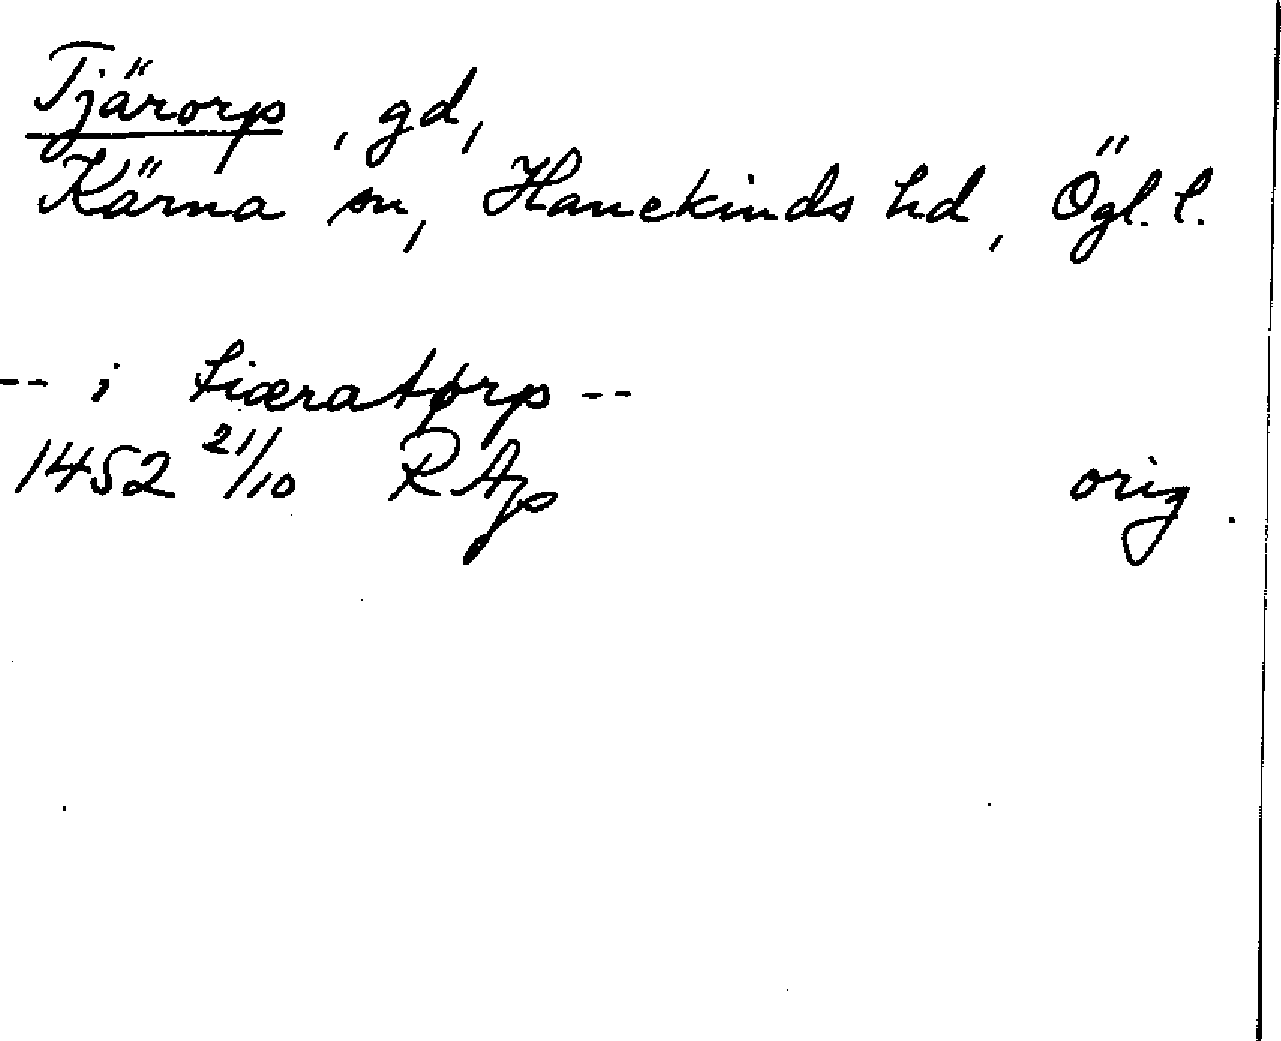 Tjärorp, gd,
Kärna sn, Hanekinds hd, Ögl. l.
-- i tiæratørp --
1452 21/10 RAp orig.